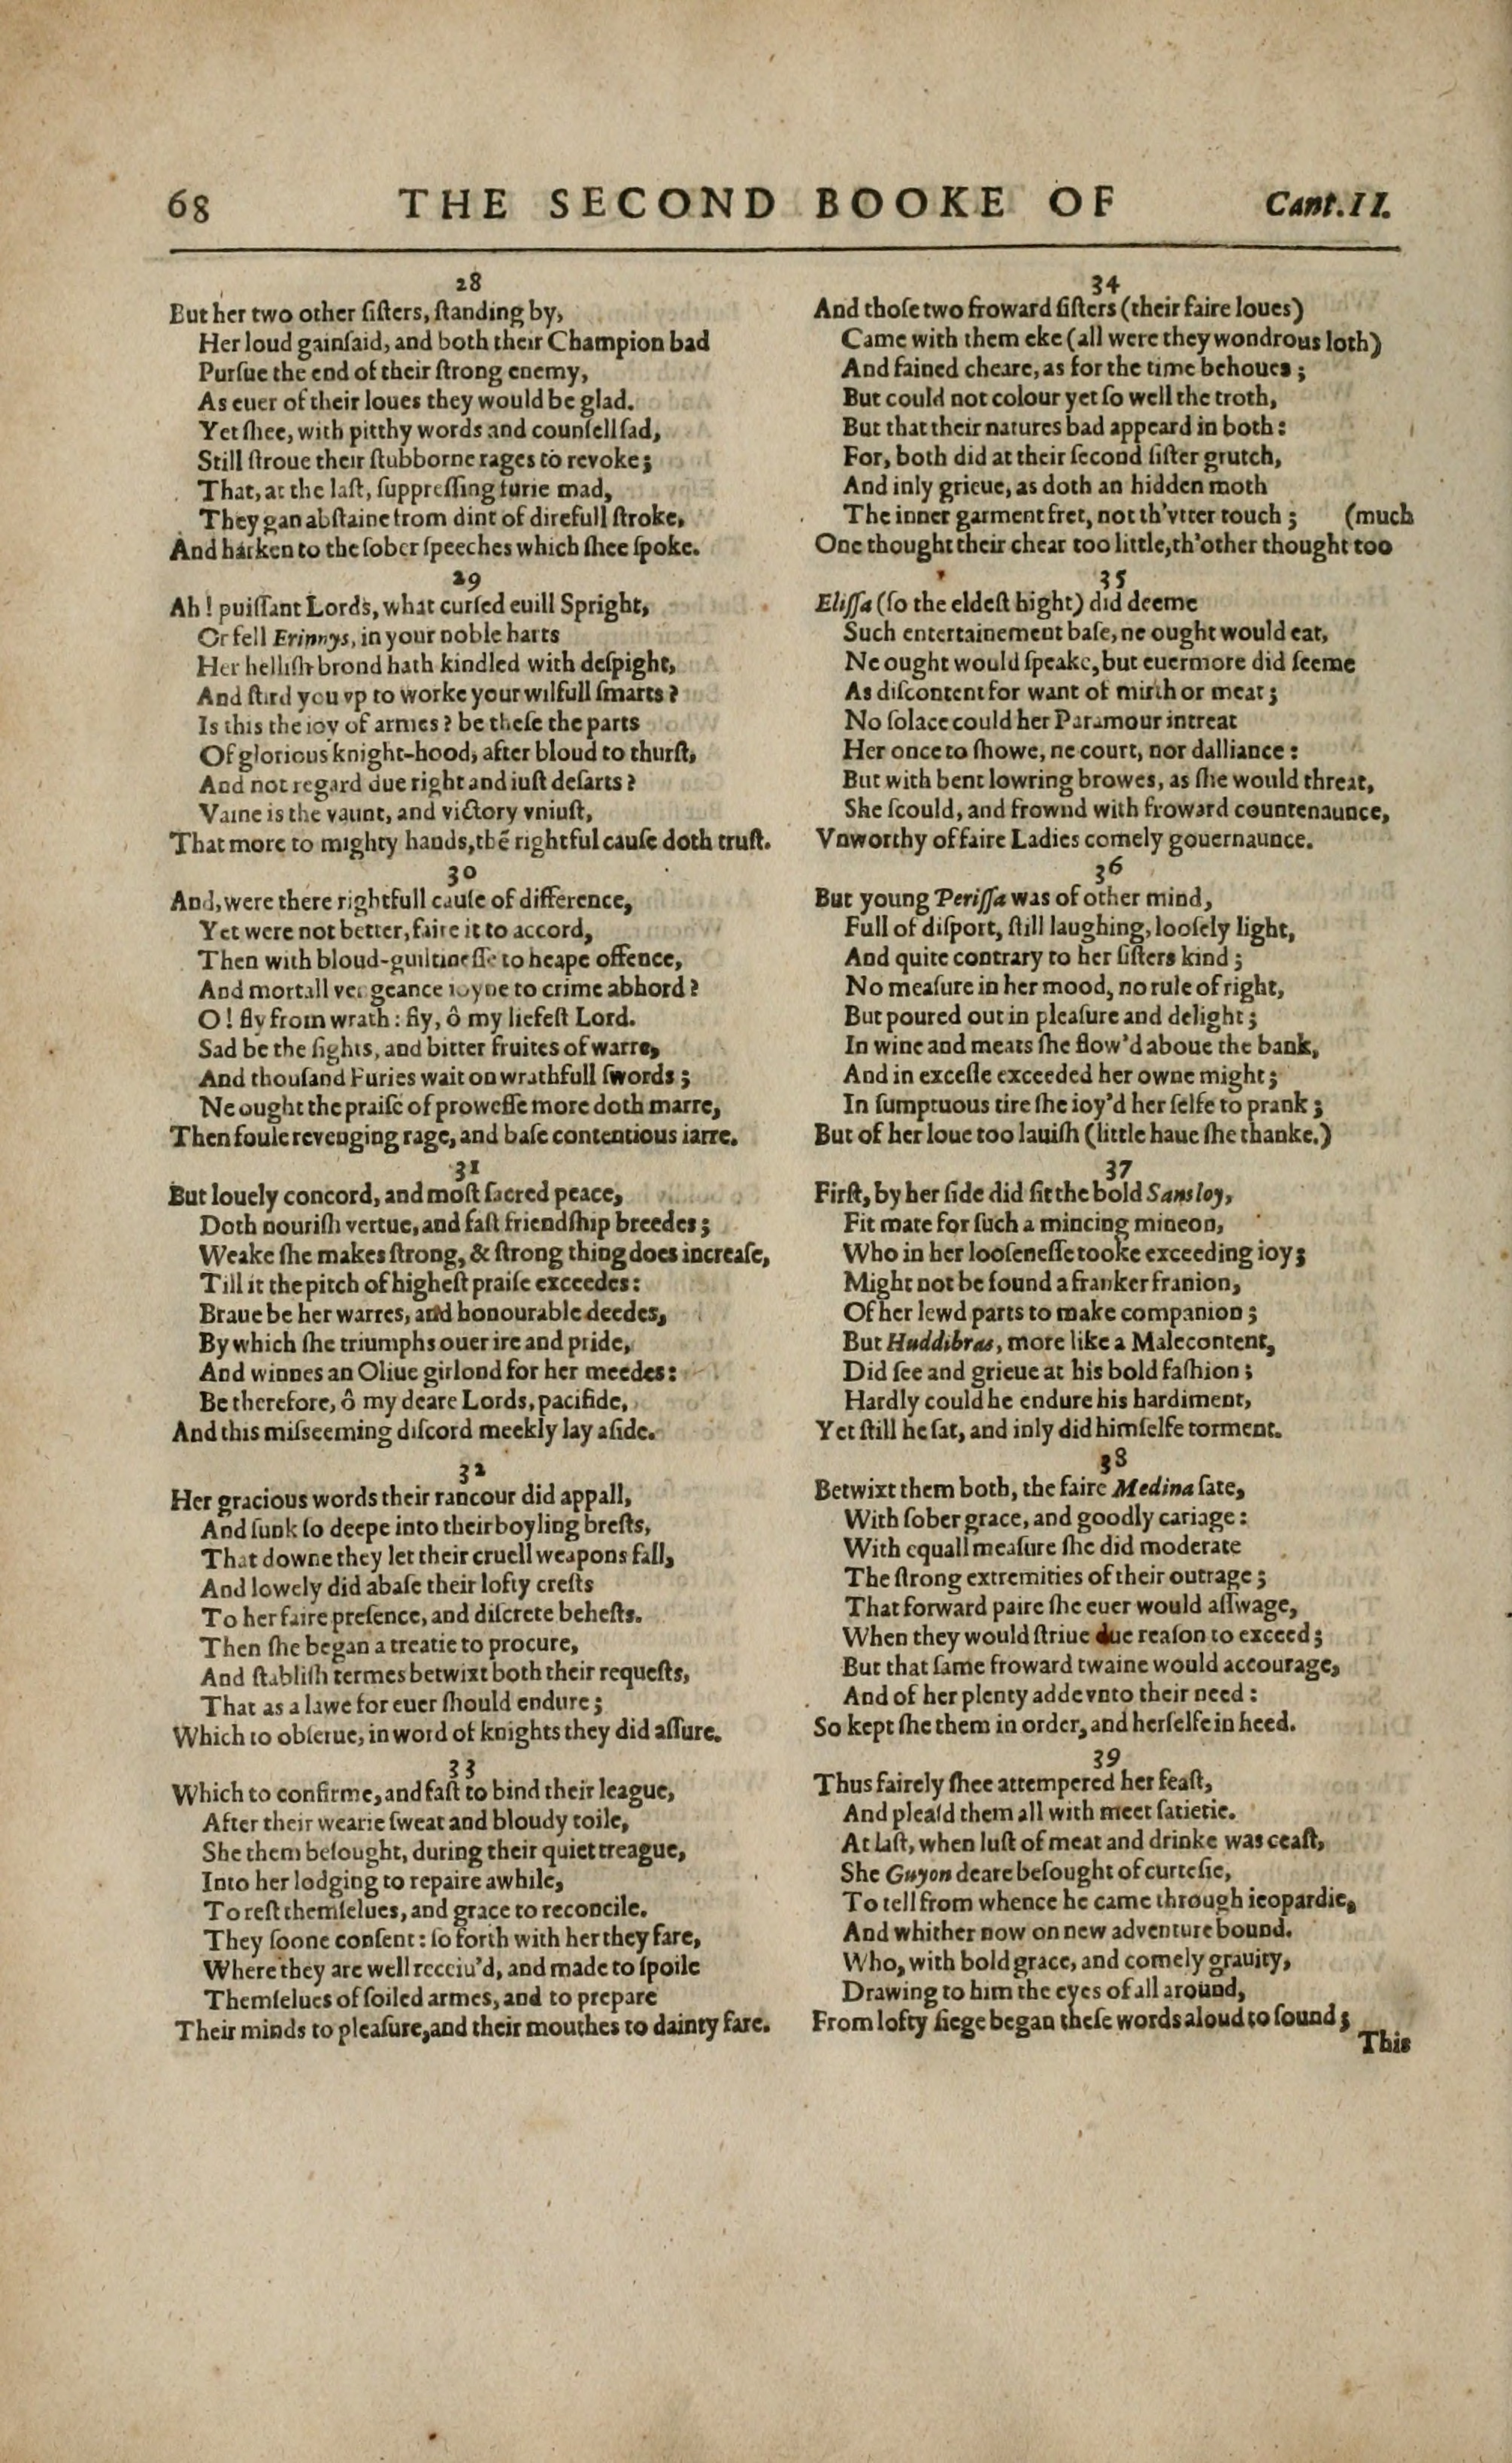 68 THE SECOND BOOKE OF Cant.II.
28
But her two other ſiſters, ſtanding by,
Her loud gainſaid, and both their Champion bad
Purſue the end of their ſtrong enemy,
As euer of their loues they would be glad.
Yet ſhee, with pitthy words and counſell ſad,
Still ſtroue their ſtubborne rages to revoke;
That, at the laſt, ſuppreſſing furie mad,
They gan abſtaine from dint of direfull ſtroke,
And harken to the ſober ſpeeches which ſhee ſpoke.
29
Ah! puiſſant Lords, what curſed euill Spright,
Or fell Erinnys, in your noble harts
Her helliſh brond hath kindled with deſpight,
And ſtird you vp to worke your wilfull ſmarts?
Is this the ioy of armes? be theſe the parts
Of glorious knight-hood, after bloud to thurſt,
And not regard due right and iuſt deſarts?
Vaine is the vaunt, and victory vniuſt,
That more to mighty hands, thẽ rightful cauſe doth truſt.
30
And, were there rightfull cauſe of difference,
Yet were not better, faire it to accord,
Then with bloud-guiltineſſe to heape offence,
And mortall vengeance ioyne to crime abhord?
O! fly from wrath: fly, ô my liefeſt Lord.
Sad be the ſights, and bitter fruites of warre,
And thouſand Furies wait on wrathfull ſwords;
Ne ought the praiſe of proweſſe more doth marre,
Then foule revenging rage, and baſe contentious iarre.
31
But louely concord, and moſt ſacred peace,
Doth nouriſh vertue, and faſt friendſhip breedes;
Weake ſhe makes ſtrong, & ſtrong thing does increaſe,
Till it the pitch of higheſt praiſe exceedes:
Braue be her warres, and honourable deedes,
By which ſhe triumphs ouer ire and pride,
And winnes an Oliue girlond for her meedes:
Be therefore, ô my deare Lords, pacifide,
And this miſseeming diſcord meekly lay aſide.
32
Her gracious words their rancour did appall,
And ſunk ſo deepe into their boyling breſts,
That downe they let their cruell weapons fall,
And lowely did abaſe their lofty creſts
To her faire preſence, and diſcrete beheſts.
Then ſhe began a treatie to procure,
And ſtabliſh termes betwixt both their requeſts,
That as a lawe for euer ſhould endure;
Which to obſerue, in word of knights they did aſſure.
33
Which to confirme, and faſt to bind their league,
After their wearie ſweat and bloudy toile,
She them beſought, during their quiet treague,
Into her lodging to repaire awhile,
To reſt themſelues, and grace to reconcile.
They ſoone conſent: ſo forth with her they fare,
Where they are well receiu'd, and made to ſpoile
Themſelues of ſoiled armes, and to prepare
Their minds to pleaſure, and their mouthes to dainty fare.
34
And thoſe two froward ſiſters (their faire loues)
Came with them eke (all were they wondrous loth)
And fained cheare, as for the time behoues;
But could not colour yet ſo well the troth,
But that their natures bad appeard in both:
For, both did at their ſecond ſiſter grutch,
And inly grieue, as doth an hidden moth
The inner garment fret, not th'vtter touch; (much
One thought their chear too little, th'other thought too
35
Eliſſa (ſo the eldeſt hight) did deeme
Such entertainement baſe, ne ought would eat,
Ne ought would ſpeake, but euermore did ſeeme
As diſcontent for want of mirth or meat;
No ſolace could her Paramour intreat
Her once to ſhowe, ne court, nor dalliance:
But with bent lowring browes, as ſhe would threat,
She ſcould, and frownd with froward countenaunce,
Vnworthy of faire Ladies comely gouernaunce.
36
But young Periſſa was of other mind,
Full of diſport, ſtill laughing, looſely light,
And quite contrary to her ſiſters kind;
No meaſure in her mood, no rule of right,
But poured out in pleaſure and delight;
In wine and meats ſhe flow'd aboue the bank,
And in exceſſe exceeded her owne might;
In ſumptuous tire ſhe ioy'd her ſelfe to prank;
But of her loue too lauiſh (little haue ſhe thanke.)
37
Firſt, by her ſide did ſit the bold Sansloy,
Fit mate for ſuch a mincing mineon,
Who in her looſeneſſe tooke exceeding ioy;
Might not be found a franker franion,
Of her lewd parts to make companion;
But Huddibras, more like a Malecontent,
Did ſee and grieue at his bold faſhion;
Hardly could he endure his hardiment,
Yet ſtill he ſat, and inly did himſelfe torment.
38
Betwixt them both, the faire Medina ſate,
With ſober grace, and goodly cariage:
With equall meaſure ſhe did moderate
The ſtrong extremities of their outrage;
That forward paire ſhe euer would aſſwage,
When they would ſtriue due reaſon to exceed;
But that ſame froward twaine would accourage,
And of her plenty adde vnto their need:
So kept ſhe them in order, and herſelfe in heed.
39
Thus fairely ſhee attempered her feaſt,
And pleaſd them all with meet ſatietie.
At laſt, when luſt of meat and drinke was ceaſt,
She Guyon deare beſought of curteſie,
To tell from whence he came through ieopardie,
And whither now on new adventure bound.
Who, with bold grace, and comely grauity,
Drawing to him the eyes of all around,
From lofty ſiege began theſe words aloud to ſound;
This